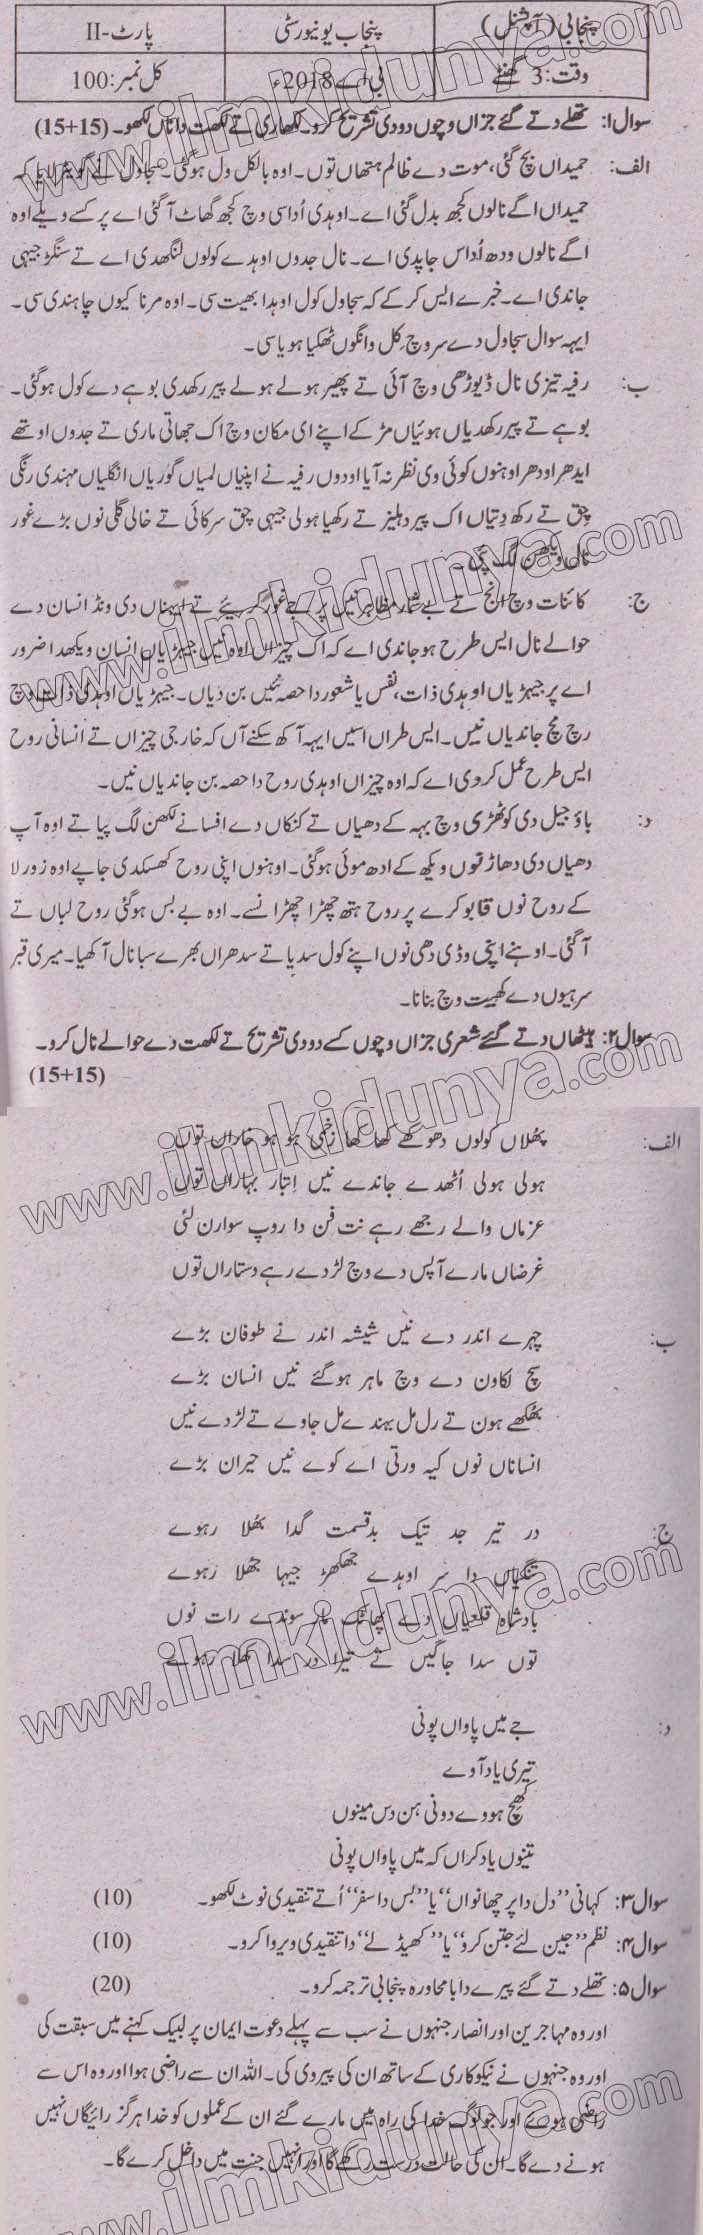 پنجابی (آپشنل) پنجاب یونیورسٹی پارٹ-II
وقت: 3 گھنٹے بی اے 2018ء کل نمبر: 100
سوال ۱: تھلے دتے گئے جزاں وچوں دو دی تشریح کرو۔ لکھاری تے لکھت دا ناں لکھو۔ (15+15)
الف: حمیداں بچ گئی، موت دے ظالم ہتھاں توں۔ اوہ بالکل ول ہوگئی۔ سجاول نے گویڑ لایا کہ
حمیداں اگے نالوں کجھ بدل گئی اے۔ اوہدی اُداسی وچ کجھ گھاٹ آ گئی اے پر کسے ویلے اوہ
اگے نالوں ودھ اُداس جاپدی اے۔ نال جدوں اوہدے کولوں لنگھدی اے تے سنگڑ جیہی
جاندی اے۔ خبرے ایس کرکے کہ سجاول کول اوہدا بھیت سی۔ اوہ مرنا کیوں چاہندی سی۔
ایہہ سوال سجاول دے سر وچ کِل وانگوں ٹھکیا ہویا سی۔
ب: رفیہ تیزی نال ڈیوڑھی وچ آئی تے پھیر ہولے ہولے پیر رکھدی بوہے دے کول ہوگئی۔
بوہے تے پیر رکھدیاں ہوئیاں مڑ کے اپنے ای مکان وچ اک جھاتی ماری تے جدوں اوتھے
ایدھر اودھر اوہنوں کوئی وی نظر نہ آیا اودوں رفیہ نے اپنیاں لمیاں گوریاں انگلیاں مہندی رنگی
چق تے رکھ دتیاں اک پیر دہلیز تے رکھیا ہولی جیہی چق سرکائی تے خالی گلی نوں بڑے غور
نال ویکھن لگ پئی۔
ج: کائنات وچ انج تے بے شمار مظاہر نیں پر جے غور کریئے تے ایہناں دی ونڈ انسان دے
حوالے نال ایس طرح ہو جاندی اے کہ اک چیزاں اوہ نیں جیہڑیاں انسان ویکھدا ضرور
اے پر جیہڑیاں اوہدی ذات، نفس یا شعور دا حصہ نئیں بن دیاں۔ جیہڑیاں اوہدی ذات وچ
رچ مچ جاندیاں نیں۔ ایس طراں اسیں ایہہ آکھ سکنے آں کہ خارجی چیزاں تے انسانی روح
ایس طرح عمل کردی اے کہ اوہ چیزاں اوہدی روح دا حصہ بن جاندیاں نیں۔
د: باؤ جیل دی کوٹھڑی وچ بہہ کے دھیاں تے کنکاں دے افسانے لکھن لگ پیا تے اوہ آپ
دھیاں دی دھاڑ توں ویکھ کے ادھ موئی ہوگئی۔ اوہنوں اپنی روح کھسکدی جاپے اوہ زور لا
کے روح نوں قابو کرے پر روح ہتھ چھڑا چھڑا نسے۔ اوہ بے بس ہوگئی روح لباں تے
آ گئی۔ اوہنے اپنی وڈی دھی نوں اپنے کول سدیا تے سدھراں بھرے سبا نال آکھیا۔ میری قبر
سرہیوں دے کھیت وچ بنانا۔
سوال ۲: ہیٹھاں دتے گئے شعری جزاں وچوں کسے دو دی تشریح تے لکھت دے حوالے نال کرو۔
(15+15)
الف: پھلاں کولوں دھوکھے کھا کھا زخمی ہو ہو خاراں توں
ہولی ہولی اُٹھدے جاندے نیں اِتبار بہاراں توں
عزماں والے رجھے رہے نت فن دا روپ سوارن لئی
غرضاں مارے آپس دے وچ لڑدے رہے دستاراں توں
ب: چہرے اندر دے نیں شیشہ اندر نے طوفان بڑے
سچ لکاون دے وچ ماہر ہوگئے نیں انسان بڑے
بھکھے ہون تے رل مل بہندے مل جاوے تے لڑدے نیں
انساناں نوں کیہ ورتی اے کوے نیں حیران بڑے
ج: در تیر جد تیک بدقسمت گدا بھلا رہوے
تنگیاں دا سر اوہدے جھکھڑ جیہا جھلا رہوے
بادشاہ قلعیاں دے پھاٹک مار سوندے رات نوں
توں سدا جاگیں تے تیرا در سدا کھلا رہوے
د: جے میں پاواں پونی
تیری یاد آوے
کھچ ہووے دونی ہن دس مینوں
تینوں یاد کراں کہ میں پاواں پونی
سوال ۳: کہانی ”دل دا پرچھانواں“ یا ”بس دا سفر“ اُتے تنقیدی نوٹ لکھو۔ (10)
سوال ۴: نظم ”جین لئے جتن کرو“ یا ”کھیڈ لے“ دا تنقیدی ویروا کرو۔ (10)
سوال ۵: تھلے دتے گئے پیرے دا بامحاورہ پنجابی ترجمہ کرو۔ (20)
اور وہ مہاجرین اور انصار جنہوں نے سب سے پہلے دعوت ایمان پر لبیک کہنے میں سبقت کی
اور وہ جنہوں نے نیکوکاری کے ساتھ ان کی پیروی کی۔ اللہ ان سے راضی ہوا اور وہ اس سے
راضی ہوئے اور جو لوگ خدا کی راہ میں مارے گئے ان کے عملوں کو خدا ہرگز رائیگاں نہیں
ہونے دے گا۔ ان کی حالت درست رکھے گا اور انہیں جنت میں داخل کرے گا۔
www.ilmkidunya.com
www.ilmkidunya.com
www.ilmkidunya.com
www.ilmkidunya.com
www.ilmkidunya.com